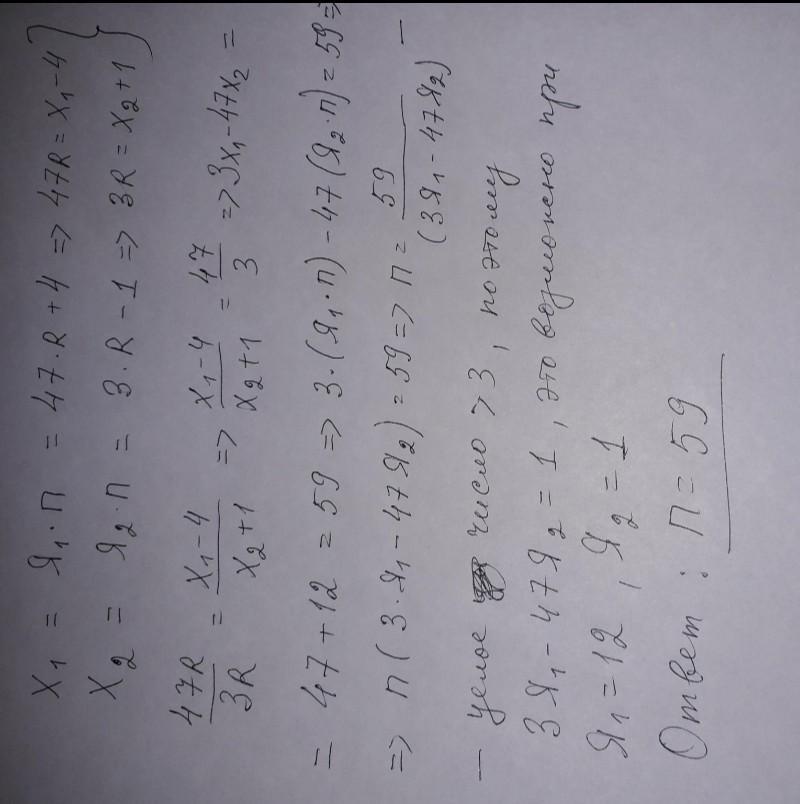 X₁ = Я₁·П = 47·R + 4 => 47R = X₁ - 4 }
X₂ = Я₂·П = 3·R - 1 => 3R = X₂ + 1 }
47R/3R = X₁-4/X₂+1 => X₁-4/X₂+1 = 47/3 => 3X₁ - 47X₂ =
= 47 + 12 = 59 => 3·(Я₁·П) - 47(Я₂·П) = 59 =>
=> П(3·Я₁ - 47Я₂) = 59 => П = 59/(3Я₁ - 47Я₂) -
- целое число > 3, поэтому
3Я₁ - 47Я₂ = 1, это возможно при
Я₁ = 12, Я₂ = 1
Ответ: П = 59